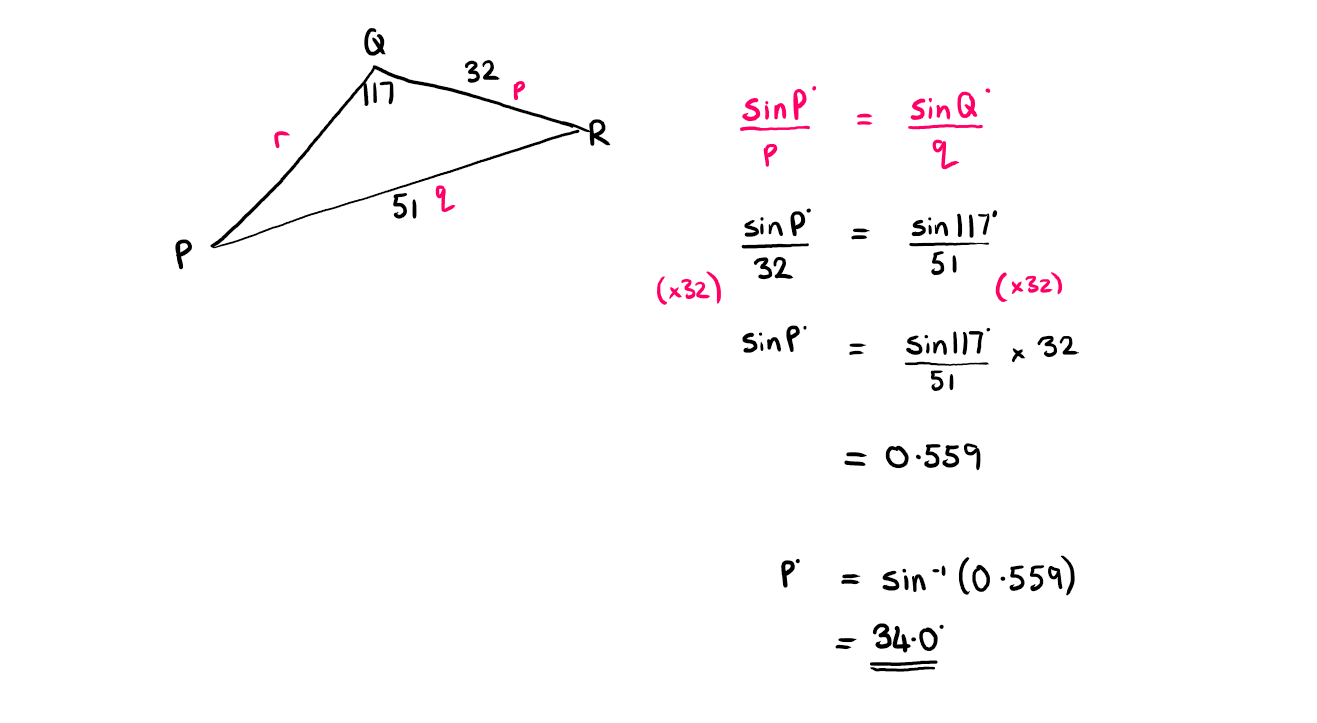 Q
117
32 p
r
R
51 q
P
sinP° / p = sinQ° / q
sinP° / 32 = sin117° / 51
(×32) (×32)
sinP° = sin117° / 51 × 32
= 0·559
P° = sin⁻¹(0·559)
= 34·0°